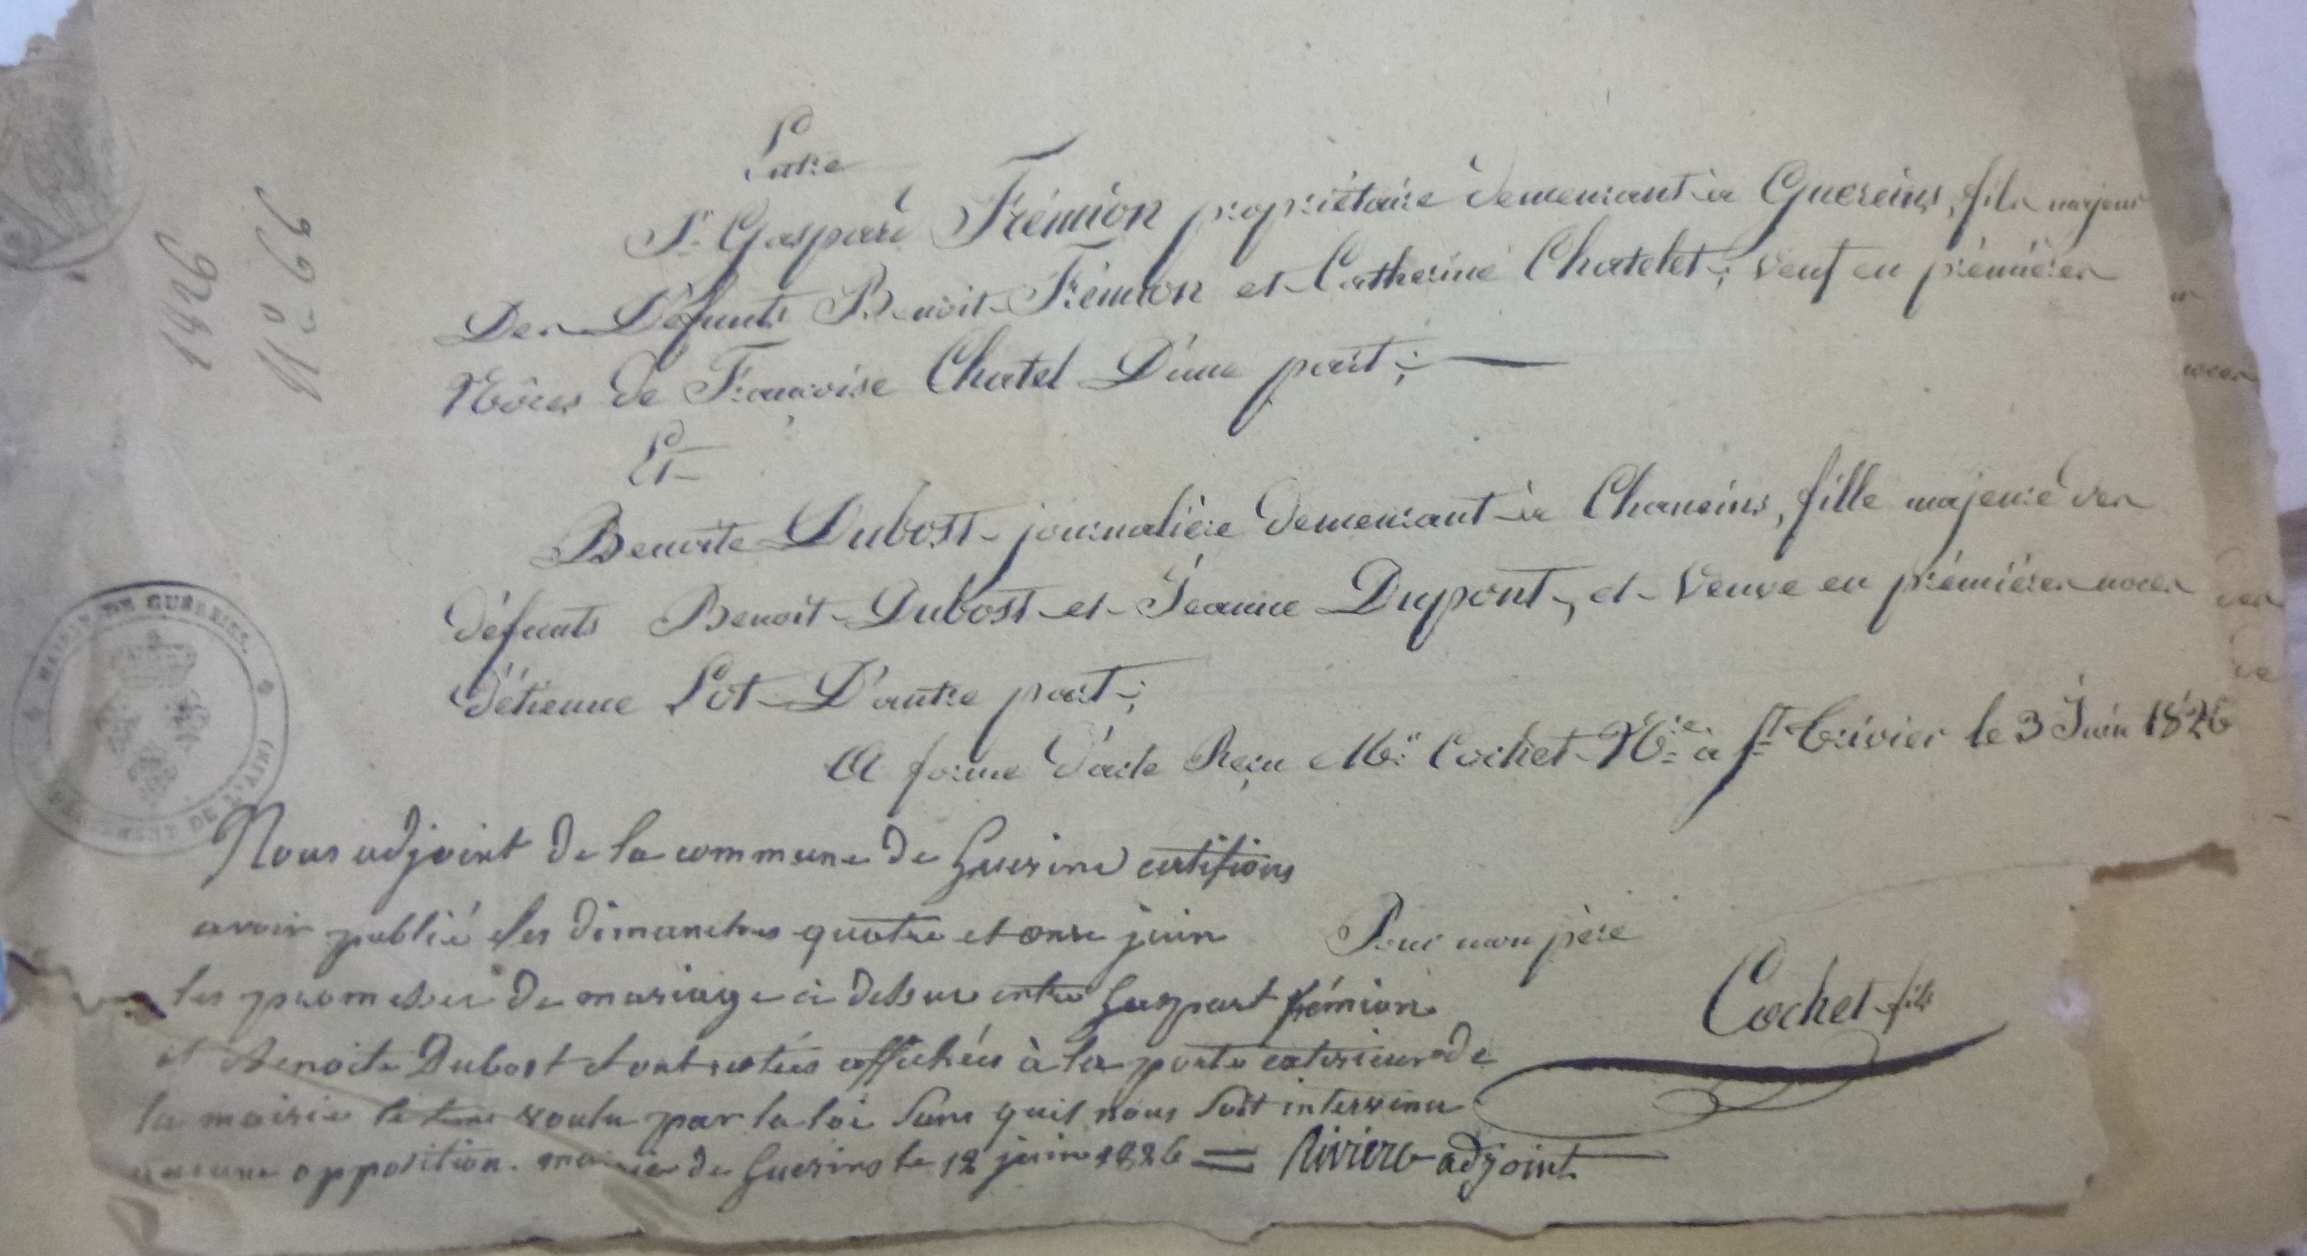 1826
N° 66
Entre
Sr. Gaspard Frémion propriétaire demeurant à Guereins, fils majeur
Des Défunts Benoit Frémion et Catherine Chatelet; veuf en prémières
Nôces de Françoise Chatel D'une part;
Et
Benoite Dubost journalière demeurant à Chaneins, fille majeure des
défunts Benoit Dubost et Jeanne Dupont, et Veuve en prémières noces
d'étienne Lot D'autre part;
A forme d'acte Reçu Me. Cochet Nre. à St. Trivier le 3 Juin 1826
MAIRIE DE GUÉREINS
DE L'AIN
Nous adjoint de la commune de Guerins certifions
avoir publié les dimanches quatre et onze juin
les promesses de mariage ci dessus entre Gaspart frémion
et Benoite Dubost et ont restées affichées à la porte exterieure de
la mairie le tems voulu par la loi sans quil nous soit intervenu
aucune opposition. mairie de Guerins le 12 juin 1826 = Riviere adjoint
Pour mon père
Cochet fils